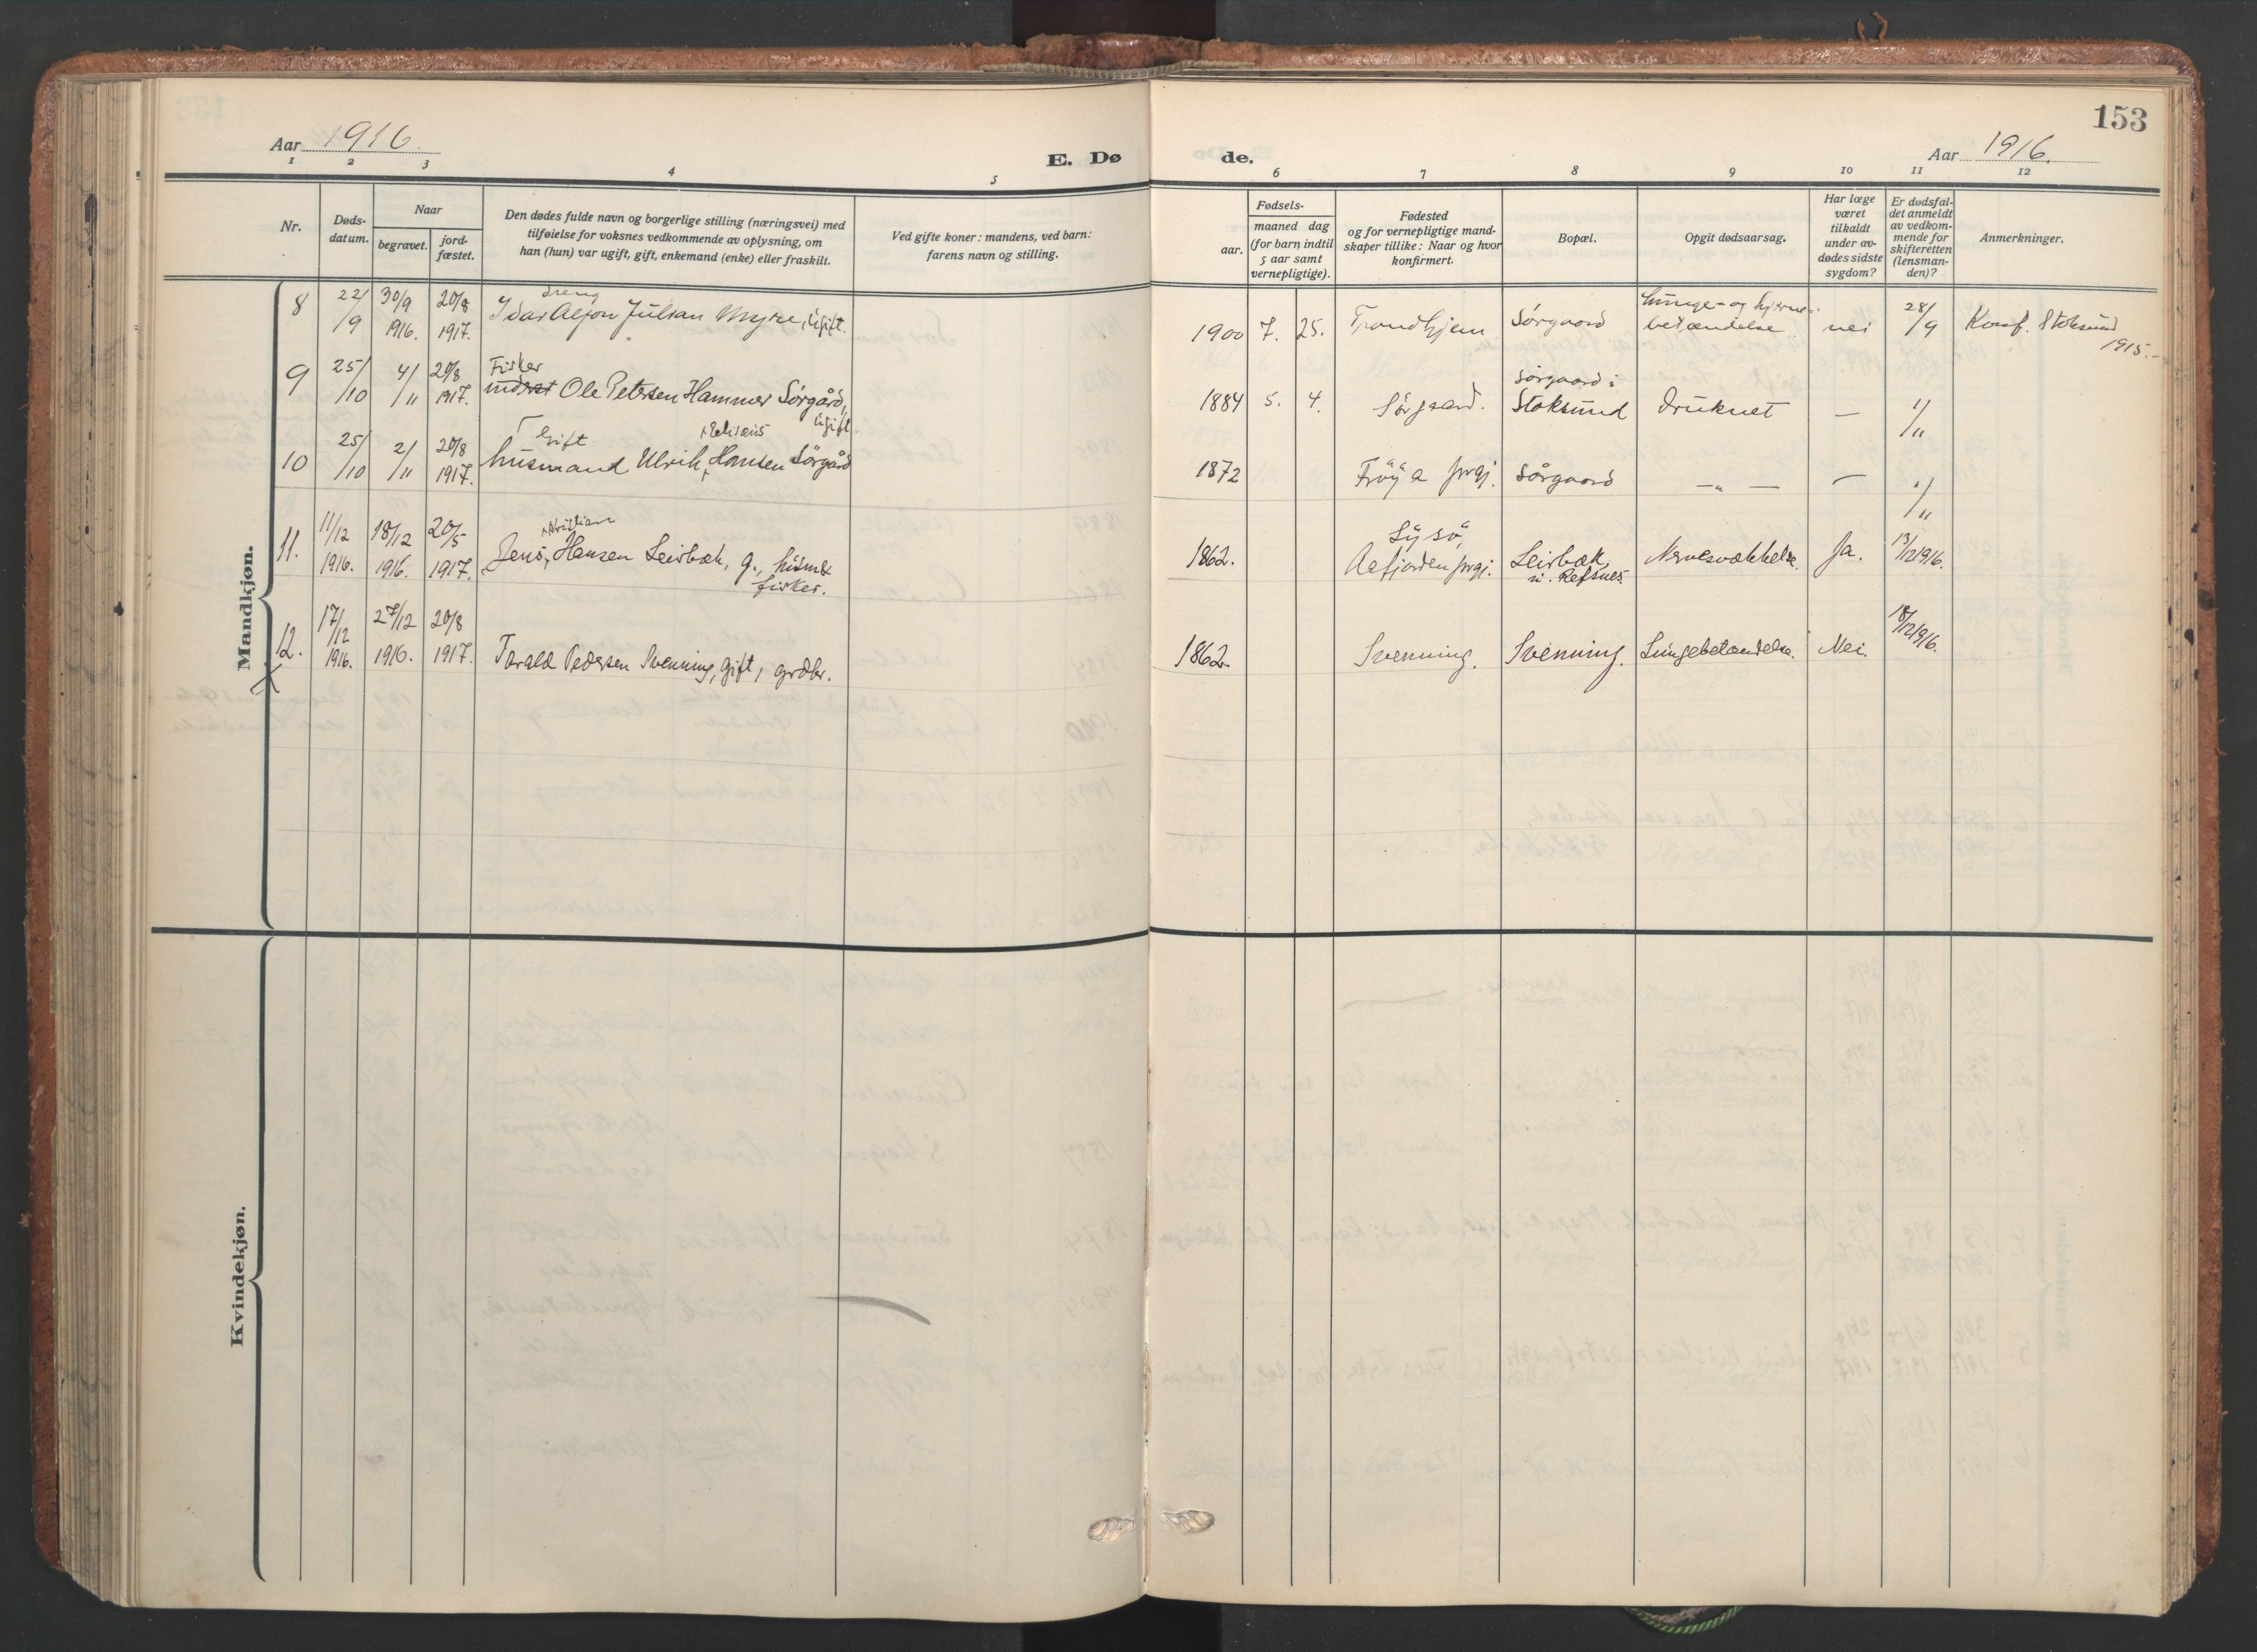 153
Aar 1916.
E. Dø de.
Aar 1916.
1 2 3 4 5 6 7 8 9 10 11 12
Nr.
Døds-
datum.
Naar
begravet.
jord-
fæstet.
Den dødes fulde navn og borgerlige stilling (næringsvei) med
tilføielse for voksnes vedkommende av oplysning, om
han (hun) var ugift, gift, enkemand (enke) eller fraskilt.
Ved gifte koner: mandens, ved barn:
farens navn og stilling.
Fødsels-
aar.
maaned dag
(for barn indtil
5 aar samt
vernepligtige).
Fødested
og for vernepligtige mand-
skaper tillike: Naar og hvor
konfirmert.
Bopæl.
Opgit dødsaarsag.
Har læge
været
tilkaldt
under av-
dødes sidste
sygdom?
Er dødsfal-
det anmeldt
av vedkom-
mende for
skifteretten
(lensman-
den)?
Anmerkninger.
Mandkjøn.
8 22/9 30/9 1916. 20/8 1917. dreng
Idar Alfon Julian Myre, ugift. 1900 7. 25. Trondhjem Sørgaard Lunge- og hjerne-
betændelse nei 28/9 Konf. Stoksund
1915.-
9 25/10 4/11 20/8 1917. Fisker
Ole Petersen Hammer Sørgård,
ugift 1884 5. 4. Sørgaard. Sørgaard i
Stoksund druknet — 1/11
10 25/10 2/11 20/8 1917. Gift
husmand Ulrik Hansen Sørgård 1872 Frøya prgj. Sørgaard —„— — 1/11
11. 11/12 1916. 18/12 1916. 20/5 1917. Kristian
Jens Hansen Leirbæk, g., husm &
fisker. 1862. Lysø,
Aafjorden prgj. Leirbæk,
u. Refsnes. Nervesvækkelse. Ja. 13/12 1916.
12. 17/12 1916. 27/12 1916. 20/8 1917. Tarald Pedersen Svenning, gift, grdbr. 1862. Svenning. Svenning. Lungebetændelse. Nei. 18/12 1916.
Kvindekjøn.